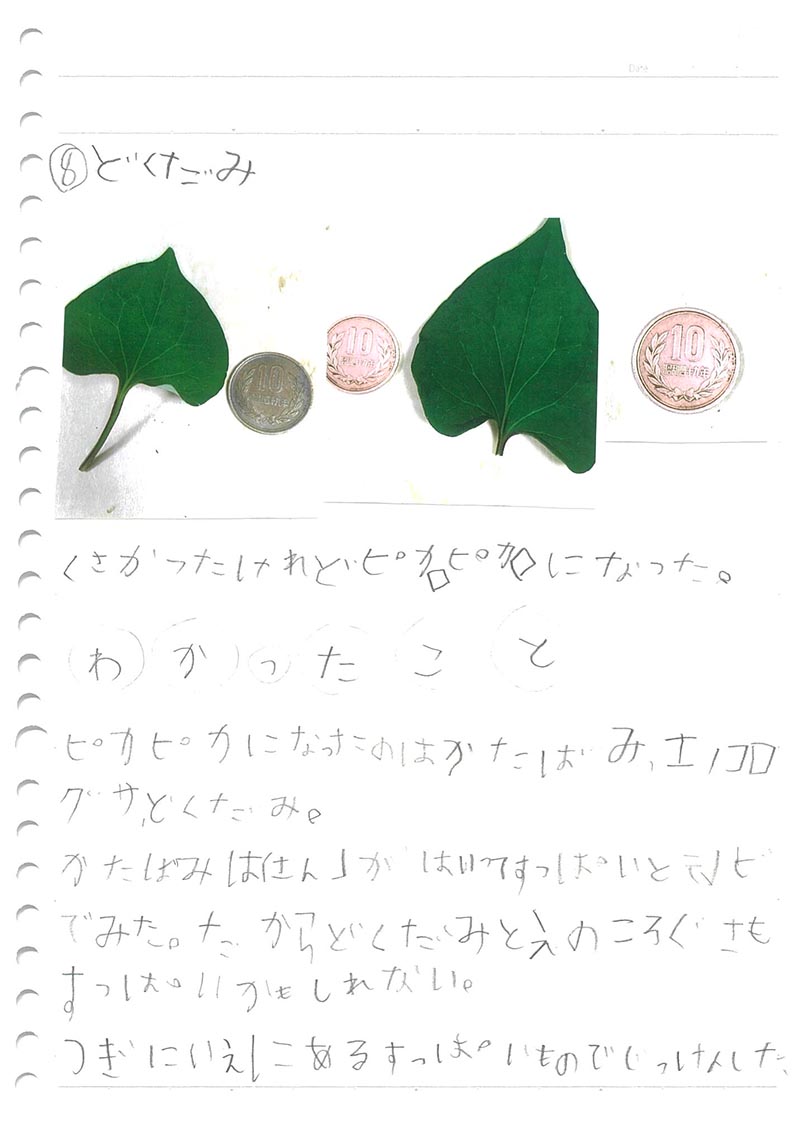 Date
⑧どくだみ
10
10
10
くさかったけれどピカピカになった。
わかったこと
ピカピカになったのはかたばみ、エノコロ
グサ、どくだみ。
かたばみは「さん」がはいってすっぱいとテレビ
でみた。だからどくだみとえのころぐさも
すっぱいかもしれない。
つぎにいえにあるすっぱいものでじっけんした